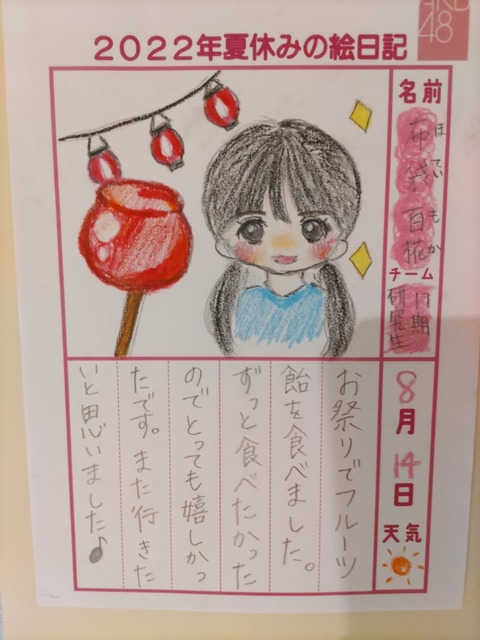 HKT48
2022年夏休みの絵日記
名前
布袋百椛
ほていもか
チーム
11期
研究生
8月14日
天気
お祭りでフルーツ
飴を食べました。
ずっと食べたかった
のでとっても嬉しかっ
たです。また行きた
いと思いました♪